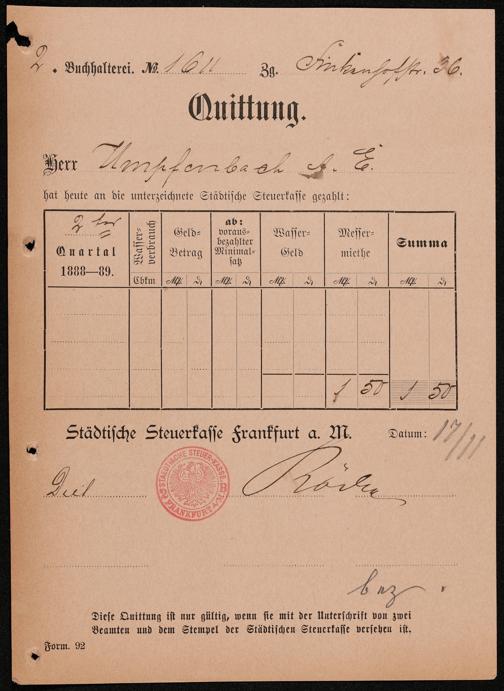 2. Buchhalterei. No. 1611 Zg. Finkenhofstr. 36.
Quittung.
Herr Umpfenbach A. E.
hat heute an die unterzeichnete Städtische Steuerkasse gezahlt:
2ter Quartal 1888—89.
Wasser-verbrauch Cbkm
Geld-Betrag M. ₰
ab: voraus-bezahlter Minimal-satz M. ₰
Wasser-Geld M. ₰
Messer-miethe M. ₰
Summa M. ₰
1 50 1 50
Städtische Steuerkasse Frankfurt a. M. Datum: 17/11
STAEDTISCHE STEUER-KASSE FRANKFURT A/M
bez.
Diese Quittung ist nur gültig, wenn sie mit der Unterschrift von zwei
Beamten und dem Stempel der Städtischen Steuerkasse versehen ist.
Form. 92